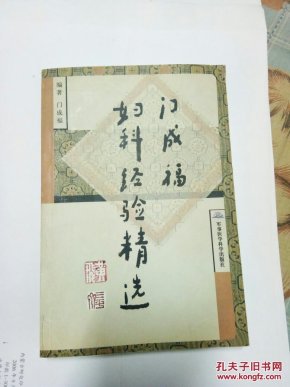 编著 门成福
门成福
妇科经验精选
军事医学科学出版社
孔夫子旧书网